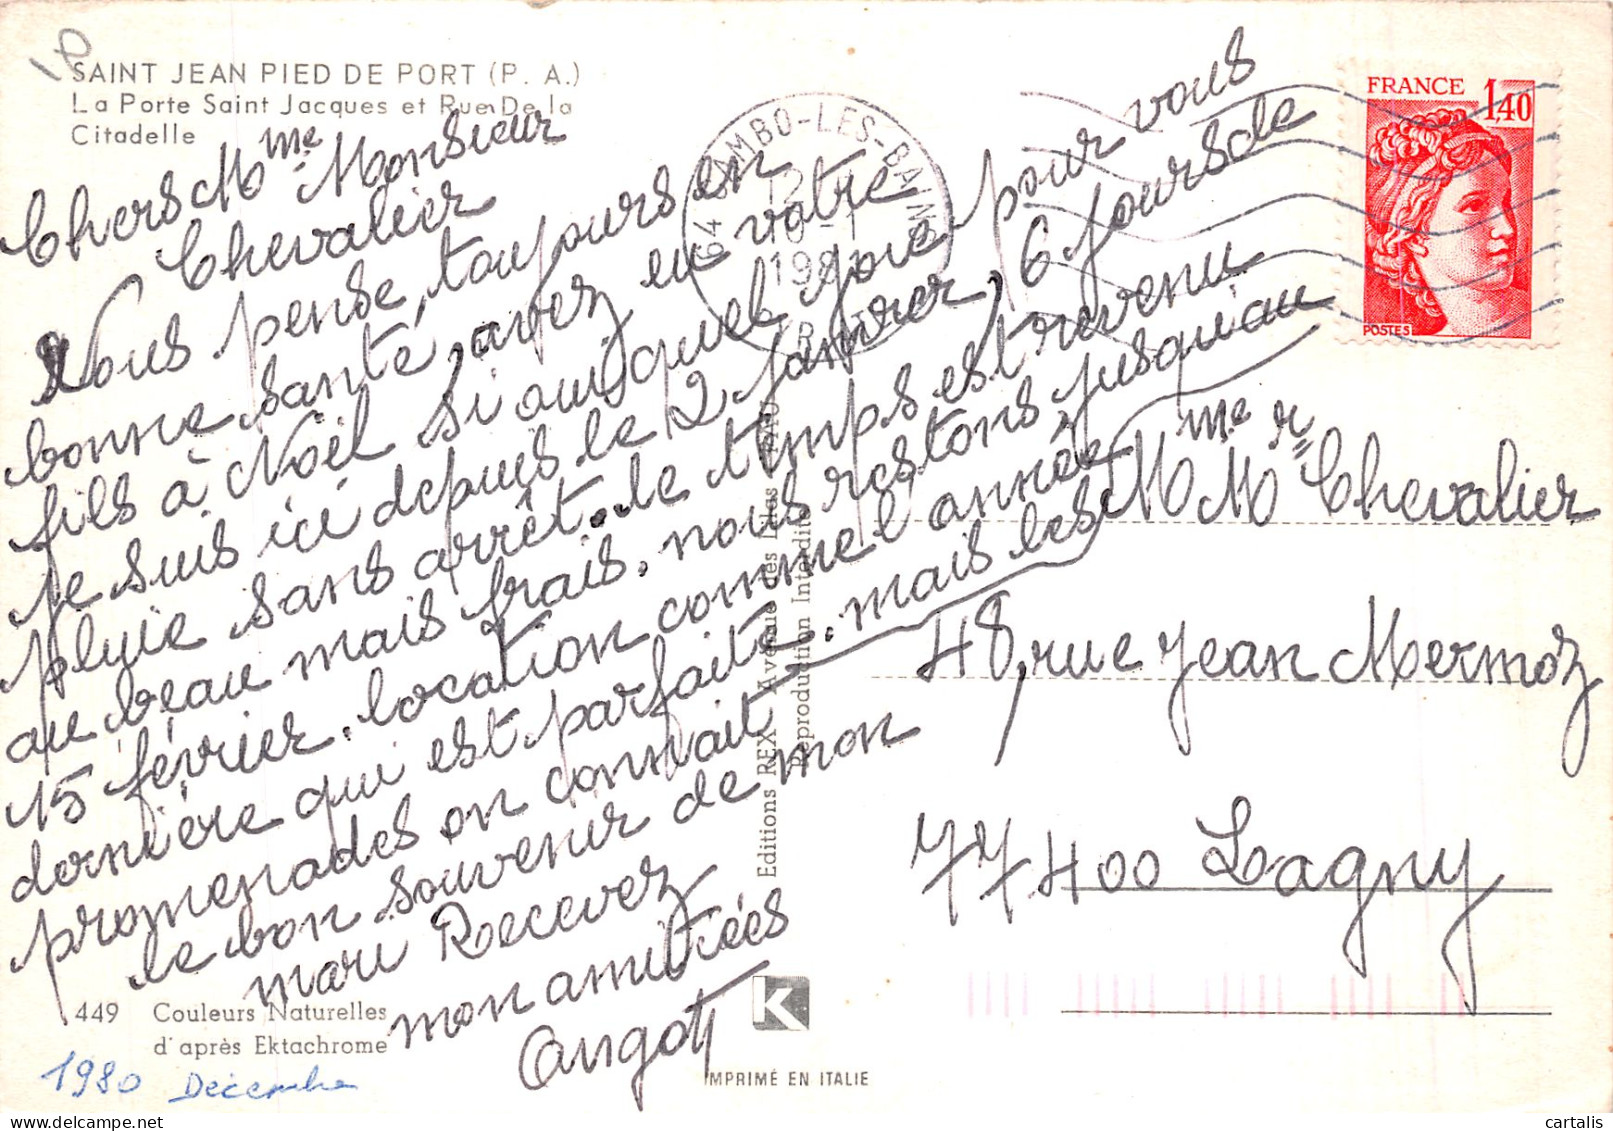 SAINT JEAN PIED DE PORT (P. A.)
La Porte Saint Jacques et Rue De la
Citadelle
Chers Mme Monsieur
Chevalier
Nous pense, toujours en
bonne santé, avez eu votre
fils à Noël si oui quel joie pour vous
je suis ici depuis le 2 Janvier, 6 jours de
pluie sans arrêt. le temps est revenu
au beau mais frais. nous restons jusqu'au
15 février. location comme l'année
dernière qui est parfaite. mais les
promenades on connait
le bon souvenir de mon
mari Recevez
mon amitiées
Angot
449 Couleurs Naturelles
d'après Ektachrome
1980 Décembre
Editions REX Avenue
Reproduction Interdite
K
IMPRIMÉ EN ITALIE
64 CAMBO-LES-BAINS
12
198
FRANCE 1,40
POSTES
Mme Mr Chevalier
48, rue Jean Mermoz
77400 Lagny
cartalis